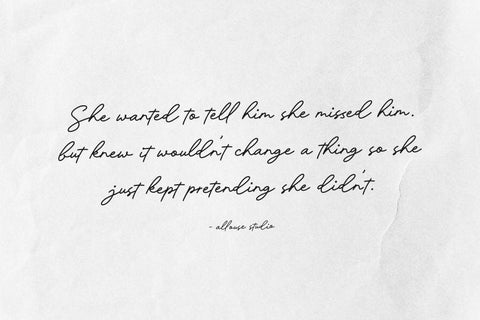 She wanted to tell him she missed him.
but knew it wouldn't change a thing so she
just kept pretending she didn't.
- allouse studio